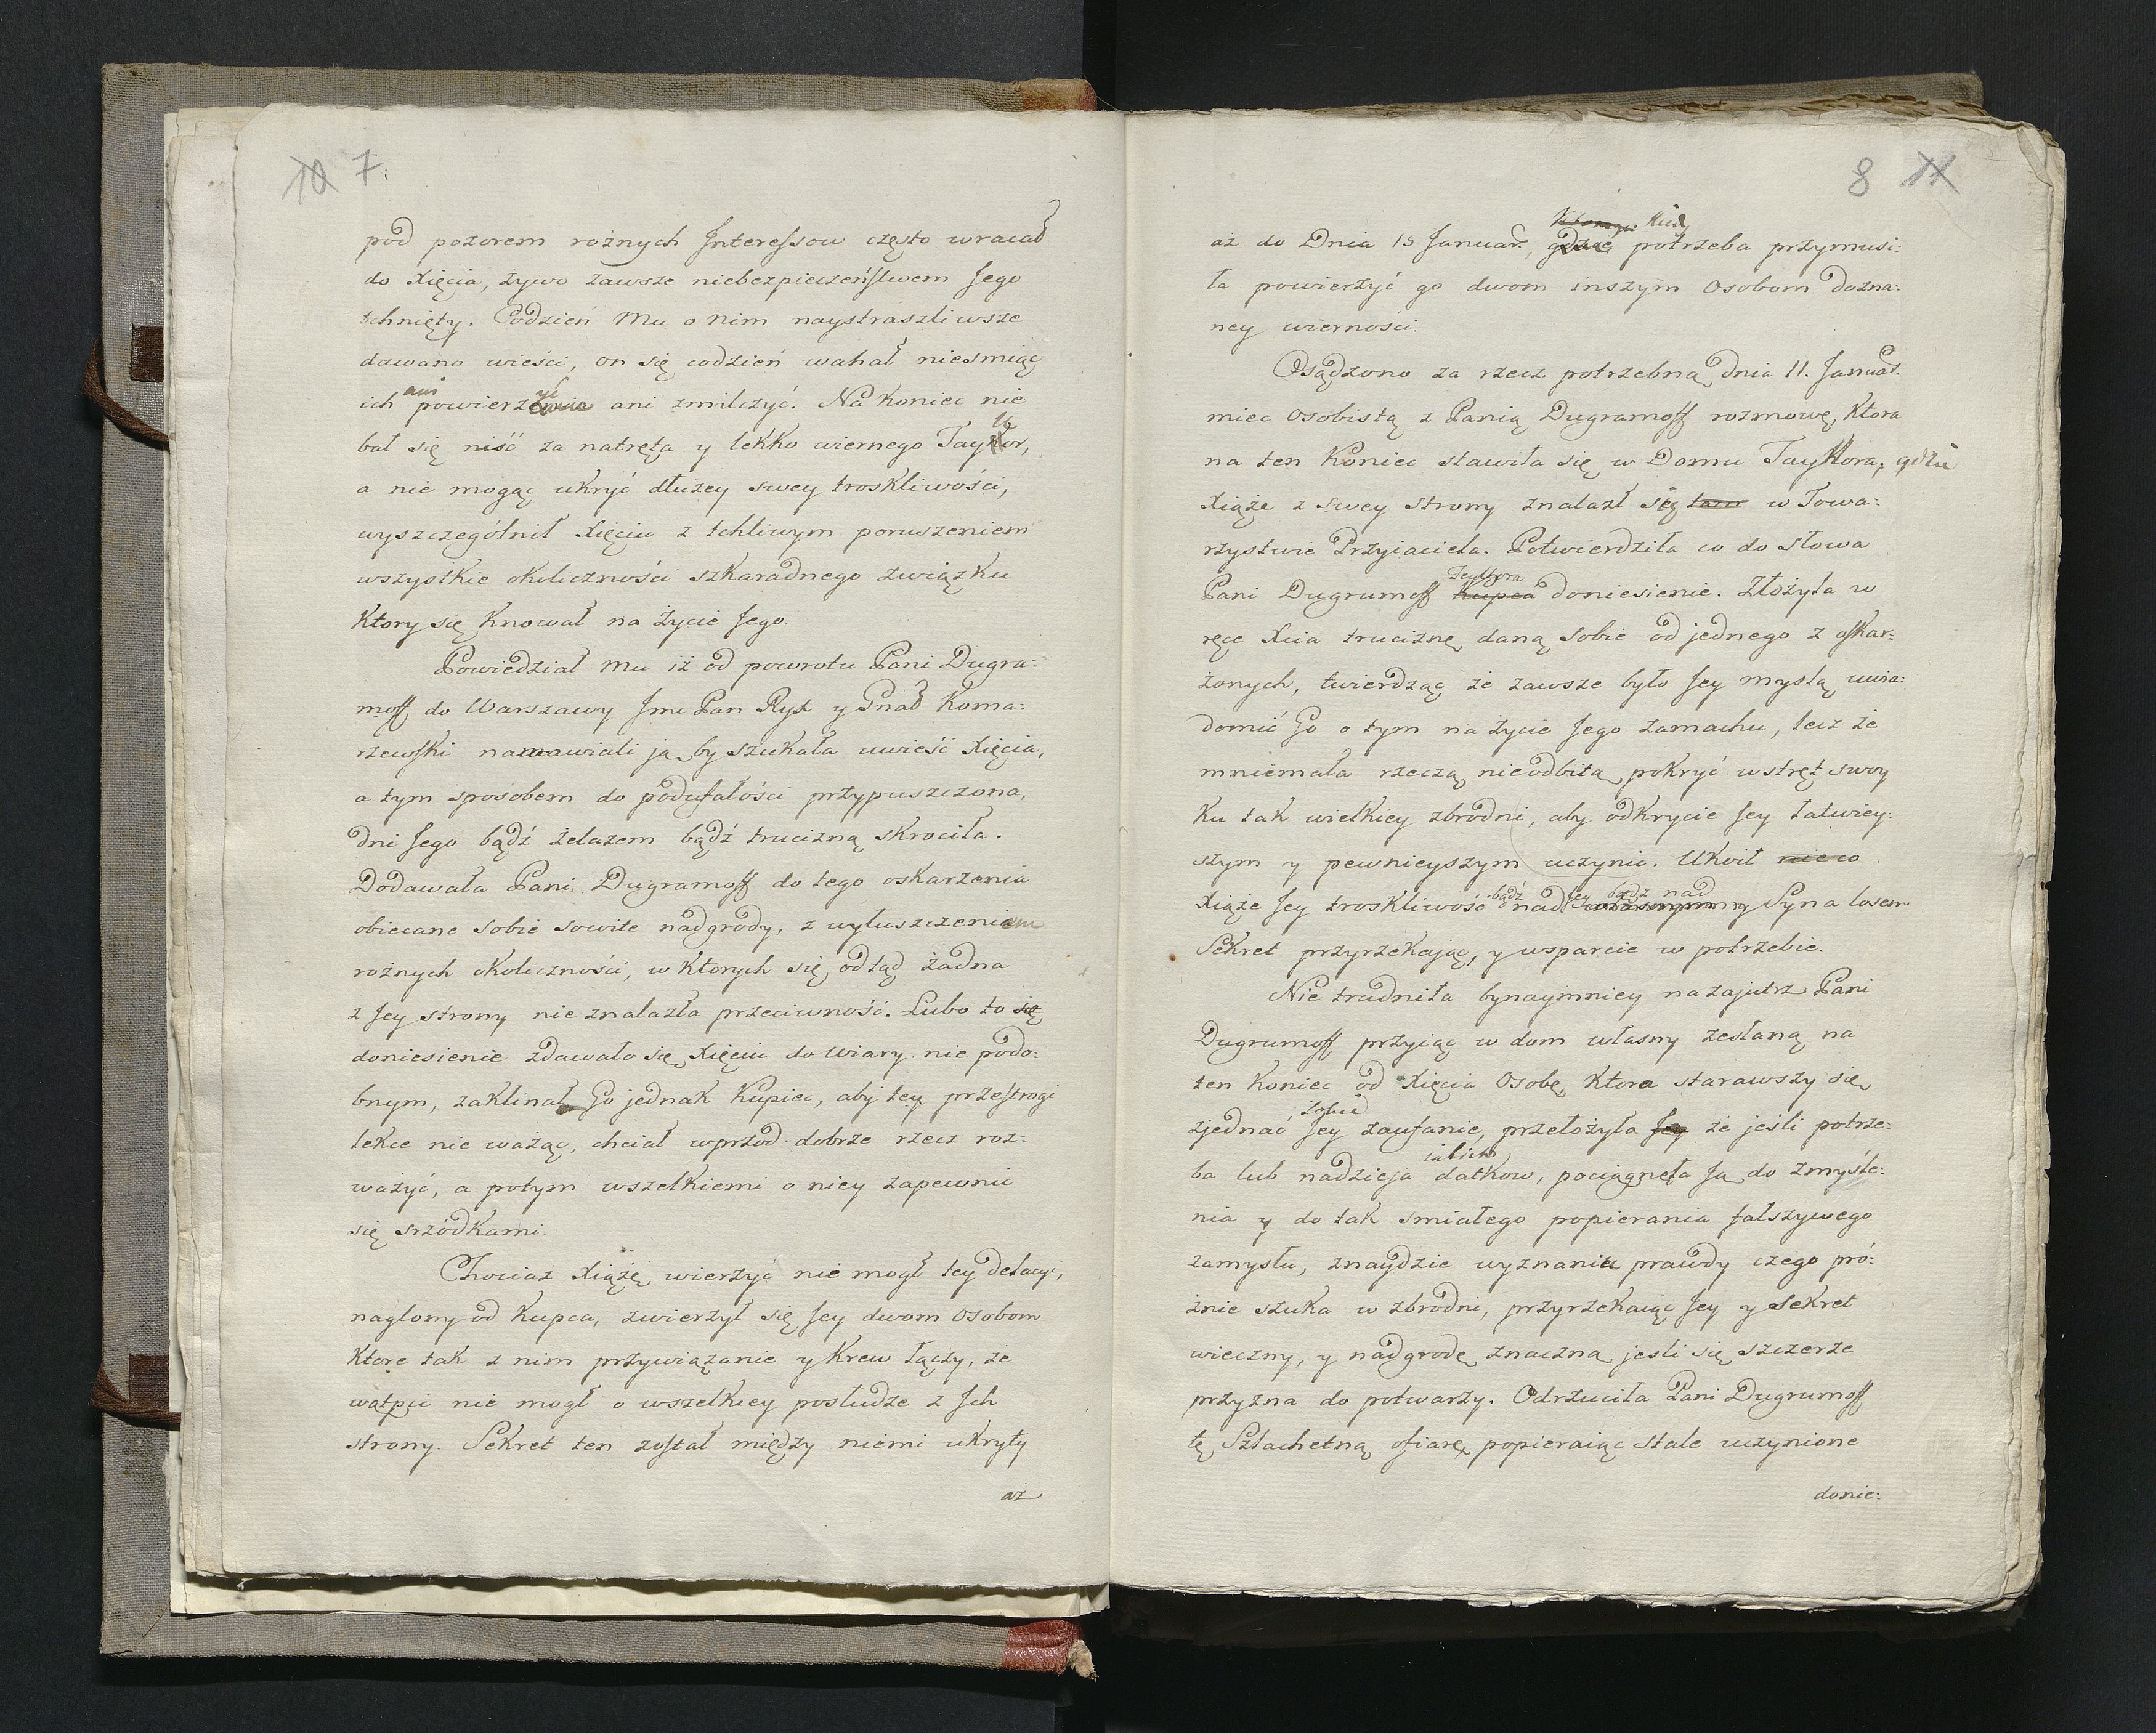 10 7.
pod pozorem rożnych Interessow często wracał
do Xięcia, żywo zawsze niebezpieczeństwem Jego
tchnięty. Codzień Mu o nim naystraszliwsze
dawano wieści, on się codzień wahał niesmiąc
ani yć
ich powierz ani zmilczyć. Na koniec nie
bał się niść za natręta y lekko wiernego Taylor,
a nie mogąc ukryć dłużey swey troskliwości,
wyszczególnił Xięciu z tchliwym poruszeniem
wszystkie okoliczności szkaradnego związku
ktory się knował na życie Jego.
Powiedział Mu iż od powrotu Pani Dugra:
moff do Warszawy Jmc Pan Ryx y Gnał Koma:
rzewski namawiali ją by szukała uwieść Xięcia,
a tym sposobem do podufałości przypuszczona,
dni Jego bądź żelazem bądź trucizną skrociła.
Dodawała Pani Dugramoff do tego oskarzenia
obiecane sobie sowite nadgrody, z wyłuszczeniem
rożnych okoliczności, w ktorych się odtąd żadna
z Jey strony nie znalazła przeciwność. Lubo to się
doniesienie zdawało się Xięciu do wiary nie podo:
bnym, zaklinał Go jednak Kupiec, aby tey przestrogi
lekce nie ważąc, chciał wprzod dobrze rzecz roz:
ważyć, a potym wszelkiemi o niey zapewnić
się srzodkami.
Chociaż Xiążę wierzyć nie mogł tey delacyi,
naglony od Kupca, zwierzył się Jey dwom osobom
ktore tak z nim przywiązanie y krew łączy, że
wątpić nie mogł o wszelkiey posłudze z Ich
strony. Sekret ten został między niemi ukryty
aż
8 11
Kiedy
aż do Dnia 15 Januar., gdzie potrzeba przymusi:
ła powierzyć go dwom inszym osobom dozna:
ney wierności.
Osądzono za rzecz potrzebną dnia 11. Januar.
miec osobistą z Panią Dugramoff rozmowę, ktora
na ten koniec stawiła się w Domu Taylora, gdzie
Xiąże z swey strony znalazł się tam w Towa:
rzystwie Przyiaciela. Potwierdziła co do słowa
Taylora
Pani Dugrumoff Kupca doniesienie. Złożyła w
ręce Xcia truciznę daną sobie od jednego z oskar:
żonych, twierdząc że zawsze było Jey myslą uwia:
domić Go o tym na życie Jego zamachu, lecz że
mniemała rzeczą nieodbitą pokryć wstręt swoy
ku tak wielkiey zbrodni, aby odkrycie Jey łatwiey:
szym y pewnieyszym uczynić. Ukoił nieco
bądź Jey bądz nad
Xiąże Jey troskliwość nad własnym y Syna losem
Sekret przyrzekając, y wsparcie w potrzebie.
Nie trudniła bynaymniey nazajutrz Pani
Dugrumoff przyiąć w dom własny zesłaną na
ten koniec od Xięcia Osobę, ktora starawszy się
sobie
zjednać Jey zaufanie, przełożyła Jey że jeśli potrze:
iakich
ba lub nadzieja datkow, pociągnęła Ją do zmyśle:
nia y do tak smiałego popierania fałszywego
zamysłu, znaydzie wyznaniu prawdy czego pró:
żnie szuka w zbrodni, przyrzekaiąc Jey y sekret
wieczny, y nadgrodę znaczną jesli się szczerze
przyzna do potwarzy. Odrzuciła Pani Dugrumoff
tę Szlachetną ofiarę, popieraiąc stale uczynione
donie: